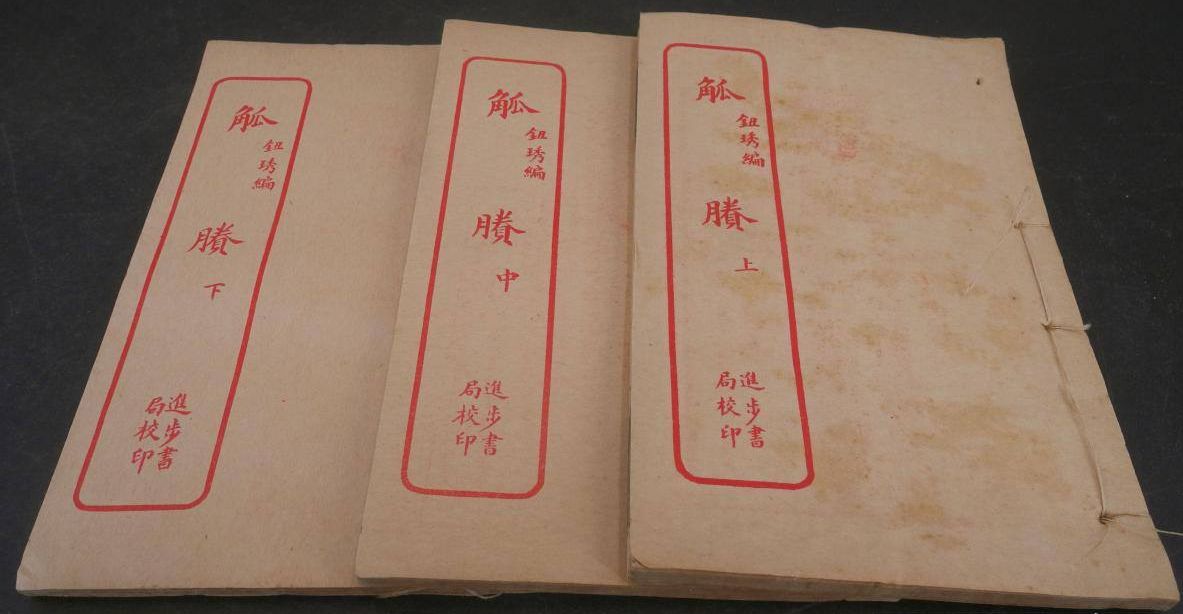 觚賸 上
鈕琇編
進步書
局校印
觚賸 中
鈕琇編
進步書
局校印
觚賸 下
鈕琇編
進步書
局校印